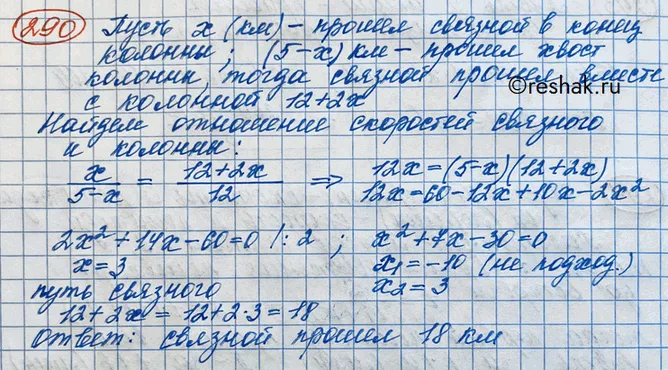 290 Пусть x (км) – прошел связной в конец
колонны; (5-x) км – прошел хвост
колонны, тогда связной прошел вместе
с колонной 12+2x
©reshak.ru
Найдем отношение скоростей связного
и колонны:
x/(5-x) = (12+2x)/12 ⇒ 12x=(5-x)(12+2x)
12x=60-12x+10x-2x²
2x²+14x-60=0 /:2 ; x²+7x-30=0
x=3 x₁=-10 (не подход.)
путь связного x₂=3
12+2x = 12+2·3=18
Ответ: связной прошел 18 км